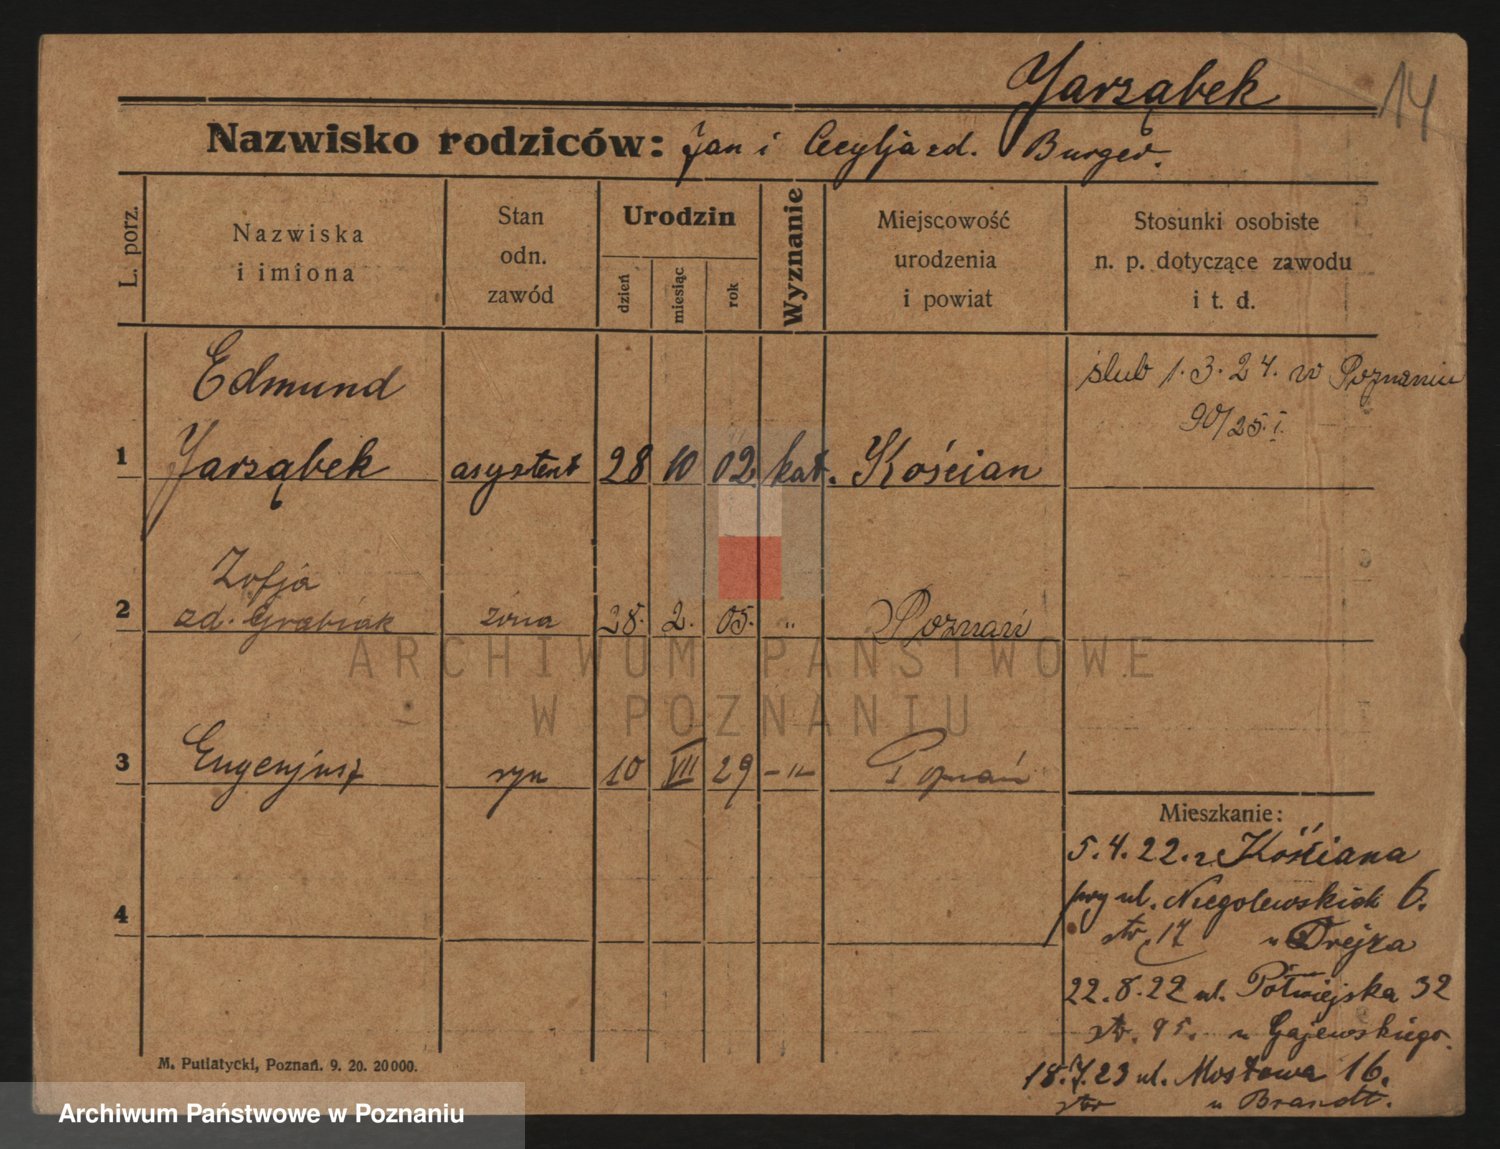 Jarząbek
14
Nazwisko rodziców: Jan i Cecylja zd. Burger.
L. porz.
Nazwiska
i imiona
Stan
odn.
zawód
Urodzin
dzień
miesiąc
rok
Wyznanie
Miejscowość
urodzenia
i powiat
Stosunki osobiste
n. p. dotyczące zawodu
i t. d.
Edmund
1 Jarząbek asystent 28 10 02. kat. Kościan
ślub 1.3.24. w Poznaniu
90/25.I.
Zofja
2 zd. Grabiak żona 28. 2. 05. " Poznań
ARCHIWUM PAŃSTWOWE
W POZNANIU
3 Eugenjusz syn 10 VII 29 -"- Poznań
4
Mieszkanie:
5.4.22. z Kościana
przy ul. Niegolewskich 6.
str. 17 u Drejza
22.8.22 ul. Półwiejska 32
str. 95. u Gajewskiego.
18.7.23 ul. Mostowa 16.
str u Brandt.
M. Putiatycki, Poznań. 9. 20. 20000.
Archiwum Państwowe w Poznaniu